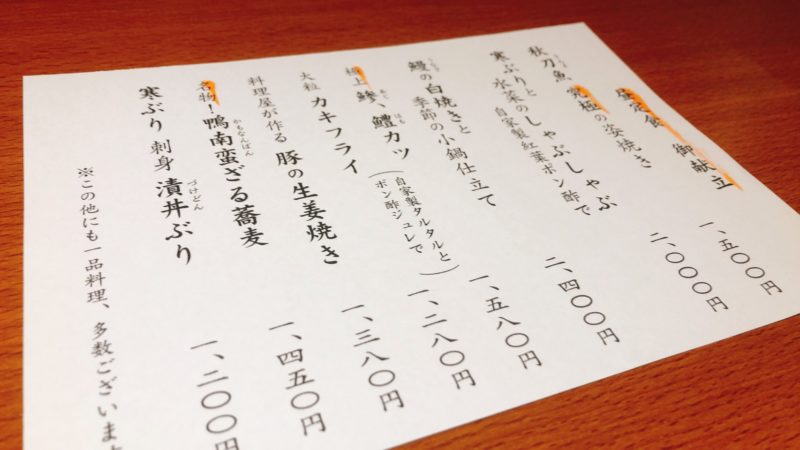 昼定食 御献立
秋刀魚 究極の姿焼き 一、五〇〇円
寒ぶりと水菜のしゃぶしゃぶ
自家製紅葉ポン酢で 二、〇〇〇円
鰻の白焼きと
季節の小鍋仕立て 二、四〇〇円
極上 鯵、鱧カツ（自家製タルタルと
ポン酢ジュレで） 一、五八〇円
大粒 カキフライ 一、二八〇円
料理屋が作る 豚の生姜焼き 一、三八〇円
かもなんばん
名物！鴨南蛮ざる蕎麦 一、四五〇円
づけどん
寒ぶり 刺身 漬丼ぶり 一、二〇〇円
※この他にも一品料理、多数ございます